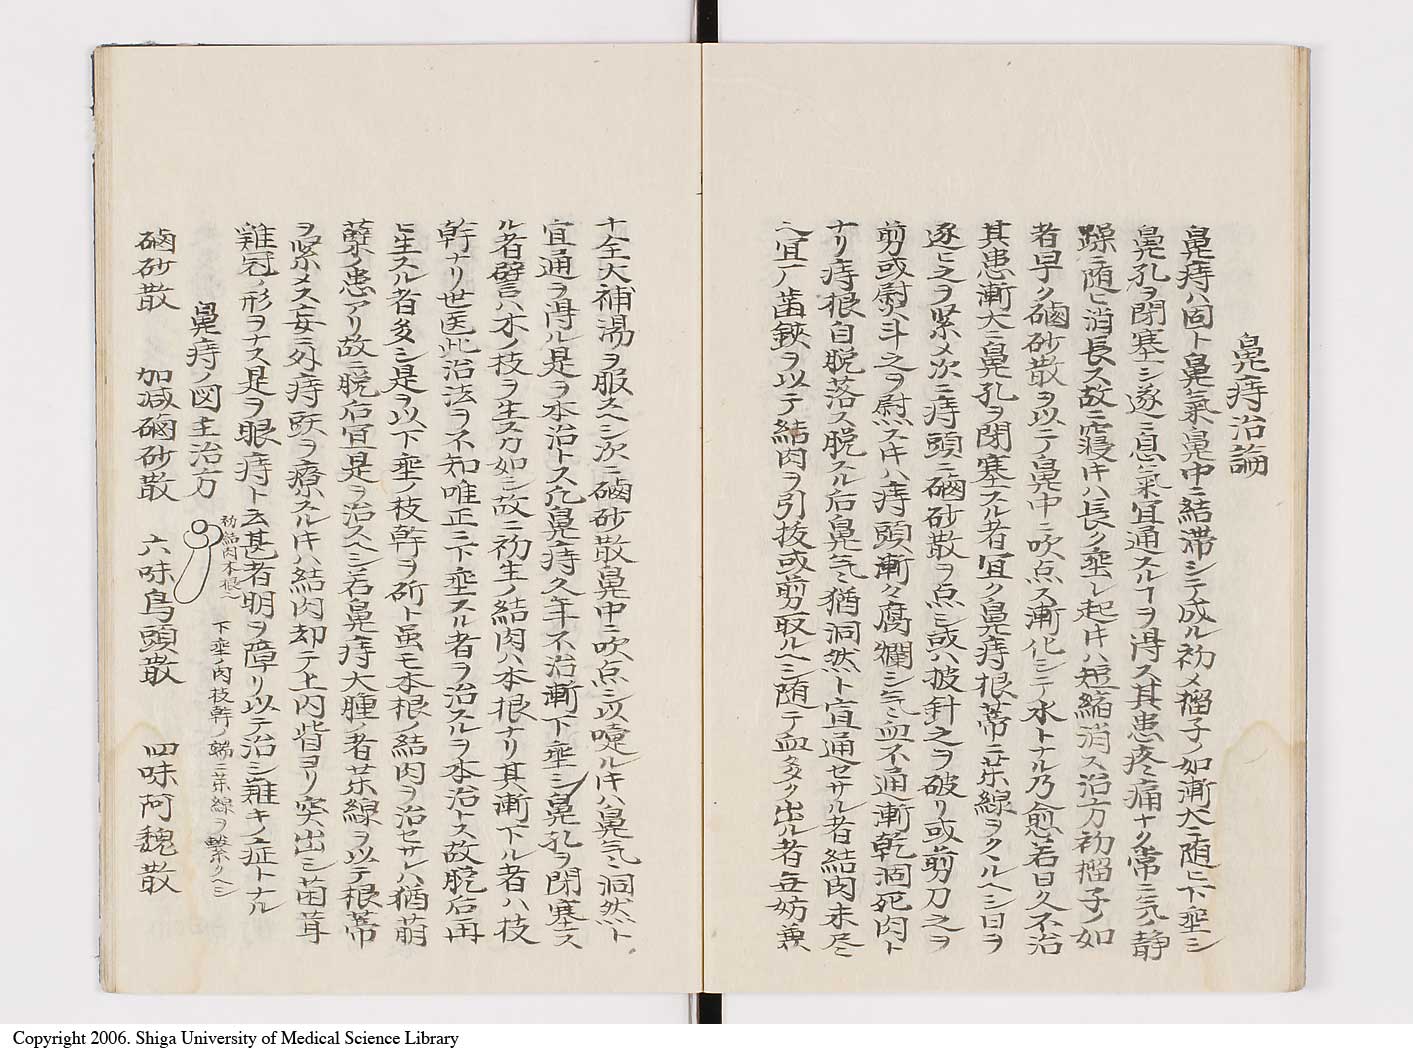 鼻痔治論
鼻痔ハ固ト鼻氣鼻中ニ結滞シテ成ル初メ榴子ノ如漸大ニ随ヒ下垂シ
鼻孔ヲ閉塞シ遂ニ息氣宜通スルヿヲ得ス其患疼痛ナク常ニ気ノ静
躁ニ随ヒ消長ス故ニ寝ル𪜈ハ長ク垂レ起𪜈ハ短縮消ス治方初榴子ノ如
者早ク磠砂散ヲ以テ鼻中ニ吹点ス漸化シテ水トナル乃愈若日久不治
其患漸大ニ鼻孔ヲ閉塞スル者宜ク鼻痔根蒂ニ芣線ヲクヽルヘシ日ヲ
逐ヒ之ヲ緊メ次ニ痔頭ニ磠砂散ヲ点シ或ハ披針之ヲ破リ或剪刀之ヲ
剪或熨斗之ヲ熨スル𪜈ハ痔頭漸々腐爛シ気血不通漸乾涸死肉ト
ナリ痔根自脱落ス脱スル后鼻气猶洞然ト宜通セサル者結肉未尽
宜ク歯鋏ヲ以テ結肉ヲ引抜或剪取ルヘシ随テ血多ク出ル者無妨兼
十全大補湯ヲ服スヘシ次ニ磠砂散鼻中ニ吹点シ以嚏ル𪜈ハ鼻气洞然ト
宜通ヲ得ル是ヲ本治トス凡鼻痔久年不治漸下垂シ鼻孔ヲ閉塞ス
ル者譬ハ木ノ枝ヲ生スカ如シ故ニ初生ノ結肉ハ本根ナリ其漸下ル者ハ枝
幹ナリ世医此治法ヲ不知唯正ニ下垂スル者ヲ治スルヲ本治トス故脱后再
ヒ生スル者多シ是ヲ以下垂ノ枝幹ヲ斫ト虽モ本根ノ結肉ヲ治セサレハ猶萠
蘗ノ患アリ故ニ脱后宜是ヲ治スヘシ若鼻痔大腫者芣線ヲ以テ根蒂
ヲ緊メス妄ニ外痔頭ヲ療スル𪜈ハ結肉却テ上内眥ヨリ突出シ菌茸
雞冠ノ形ヲナス是ヲ眼痔ト云甚者明ヲ障リ以テ治シ難キノ症トナル
鼻痔ノ図主治方
初結肉本根
下垂ノ肉枝幹ノ端ニ芣線ヲ繋クヘシ
磠砂散 加減磠砂散 六味烏頭散 四味阿魏散
Copyright 2006. Shiga University of Medical Science Library